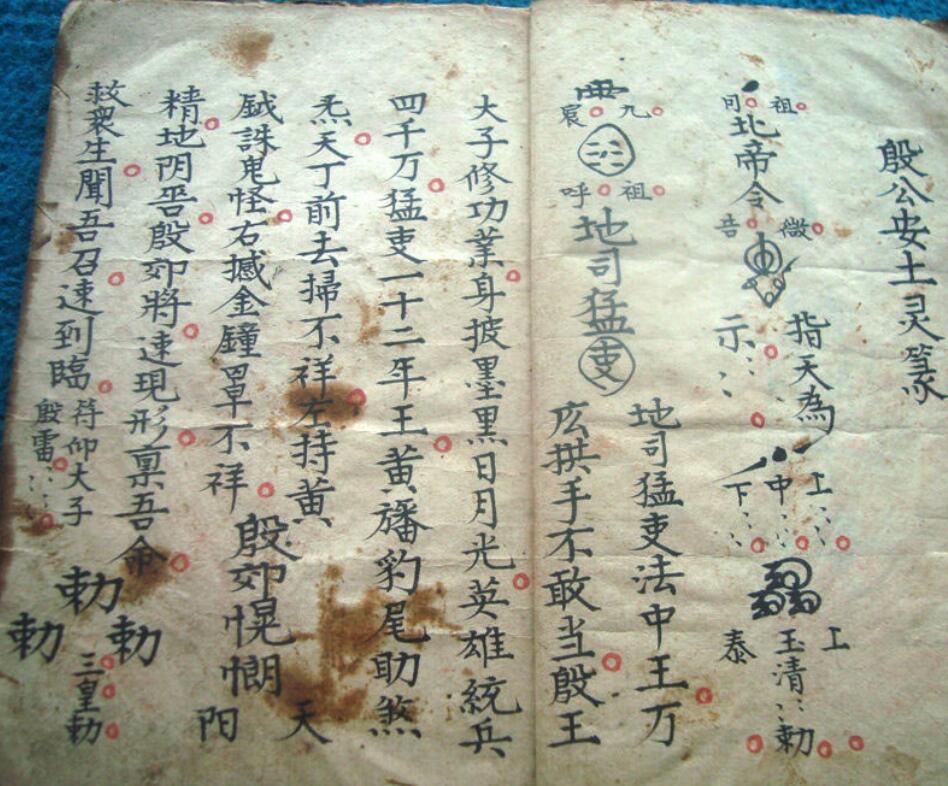 殷公安土灵篆
祖
司
北帝令
微
告
指天為
示
上
中
下
上
玉清
泰
勅
地司猛吏法中王万
庅拱手不敢当殷王
九
宸
祖
呼
地司猛吏
大子修功業身披墨黒日月光英雄統兵
四千万猛吏一十二年王黄旛豹尾助煞
炁天丁前去掃不祥左持黄
天
鉞誅鬼怪右撼金鐘罩不祥
殷郊愰
阳
精地閃
殷郊將速現形禀吾命
救衆生聞吾召速到臨
符仰大子
殷雷
勅
勅
勅
三皇勅